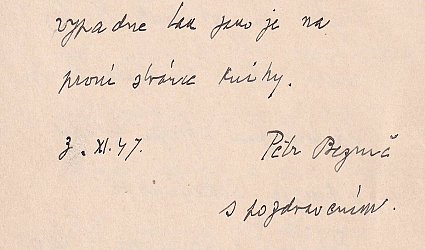 vypadne tak jako je na
první stránce knihy.
3. XI. 47. Petr Bezruč
s pozdravením.